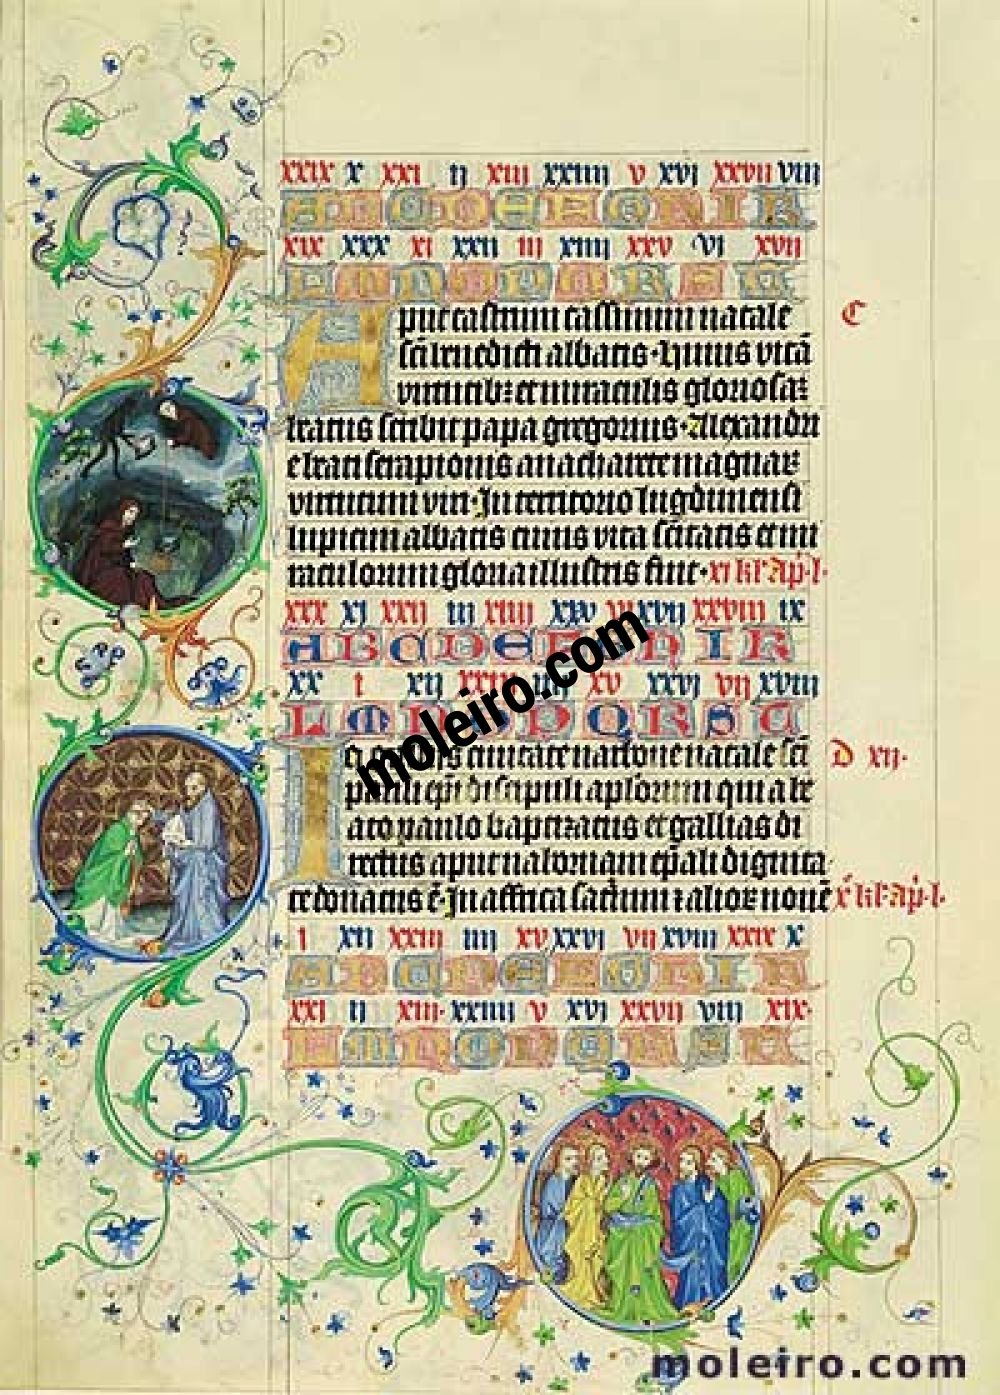 xxix x xxi ij xiii xxiiii v xvj xxvii viii
A B C D E F G H I K
xix xxx xi xxii iij xiiij xxv vi xvii
L M N O P Q R S T
Aput castrum cassinum natale
sc̄i benedicti abbatis · huius vitā
virtutibꝫ et miraculis gloriosaꝫ
beatus scribit papa gregorius · Alexandri
e beati serapionis anachorite magnaꝝ
virtutum viri · In territorio lugdunensi
lupicini abbatis cuius vita sc̄itatis et mi
raculorum gloria illustris fuit · xi kl' Ap·l·
C
xxx xj xxii iii xiiij xxv xvij xxviii ix
A B C D E F H I K
xx i xij xxiii xv xxvj vij xviii
L M N O P Q R S T
ciuitate narbone natale sc̄i
pauli ep̄i discipuli aplorum qui a be
ato paulo baptizatus et gallias di
rectus aput narbonam ep̄ali dignita
te donatus ē · In affrica sactum ⁊ alioꝝ nouē x kl' Ap·l·
D xij·
i xii xxiii iiii xv xxvj vij xviii xxix x
A B C D E F G H I K
xxi ij xiii· xxiiii v xvj xxvij viii xix·
L M N O P Q R S
moleiro.com
moleiro.com